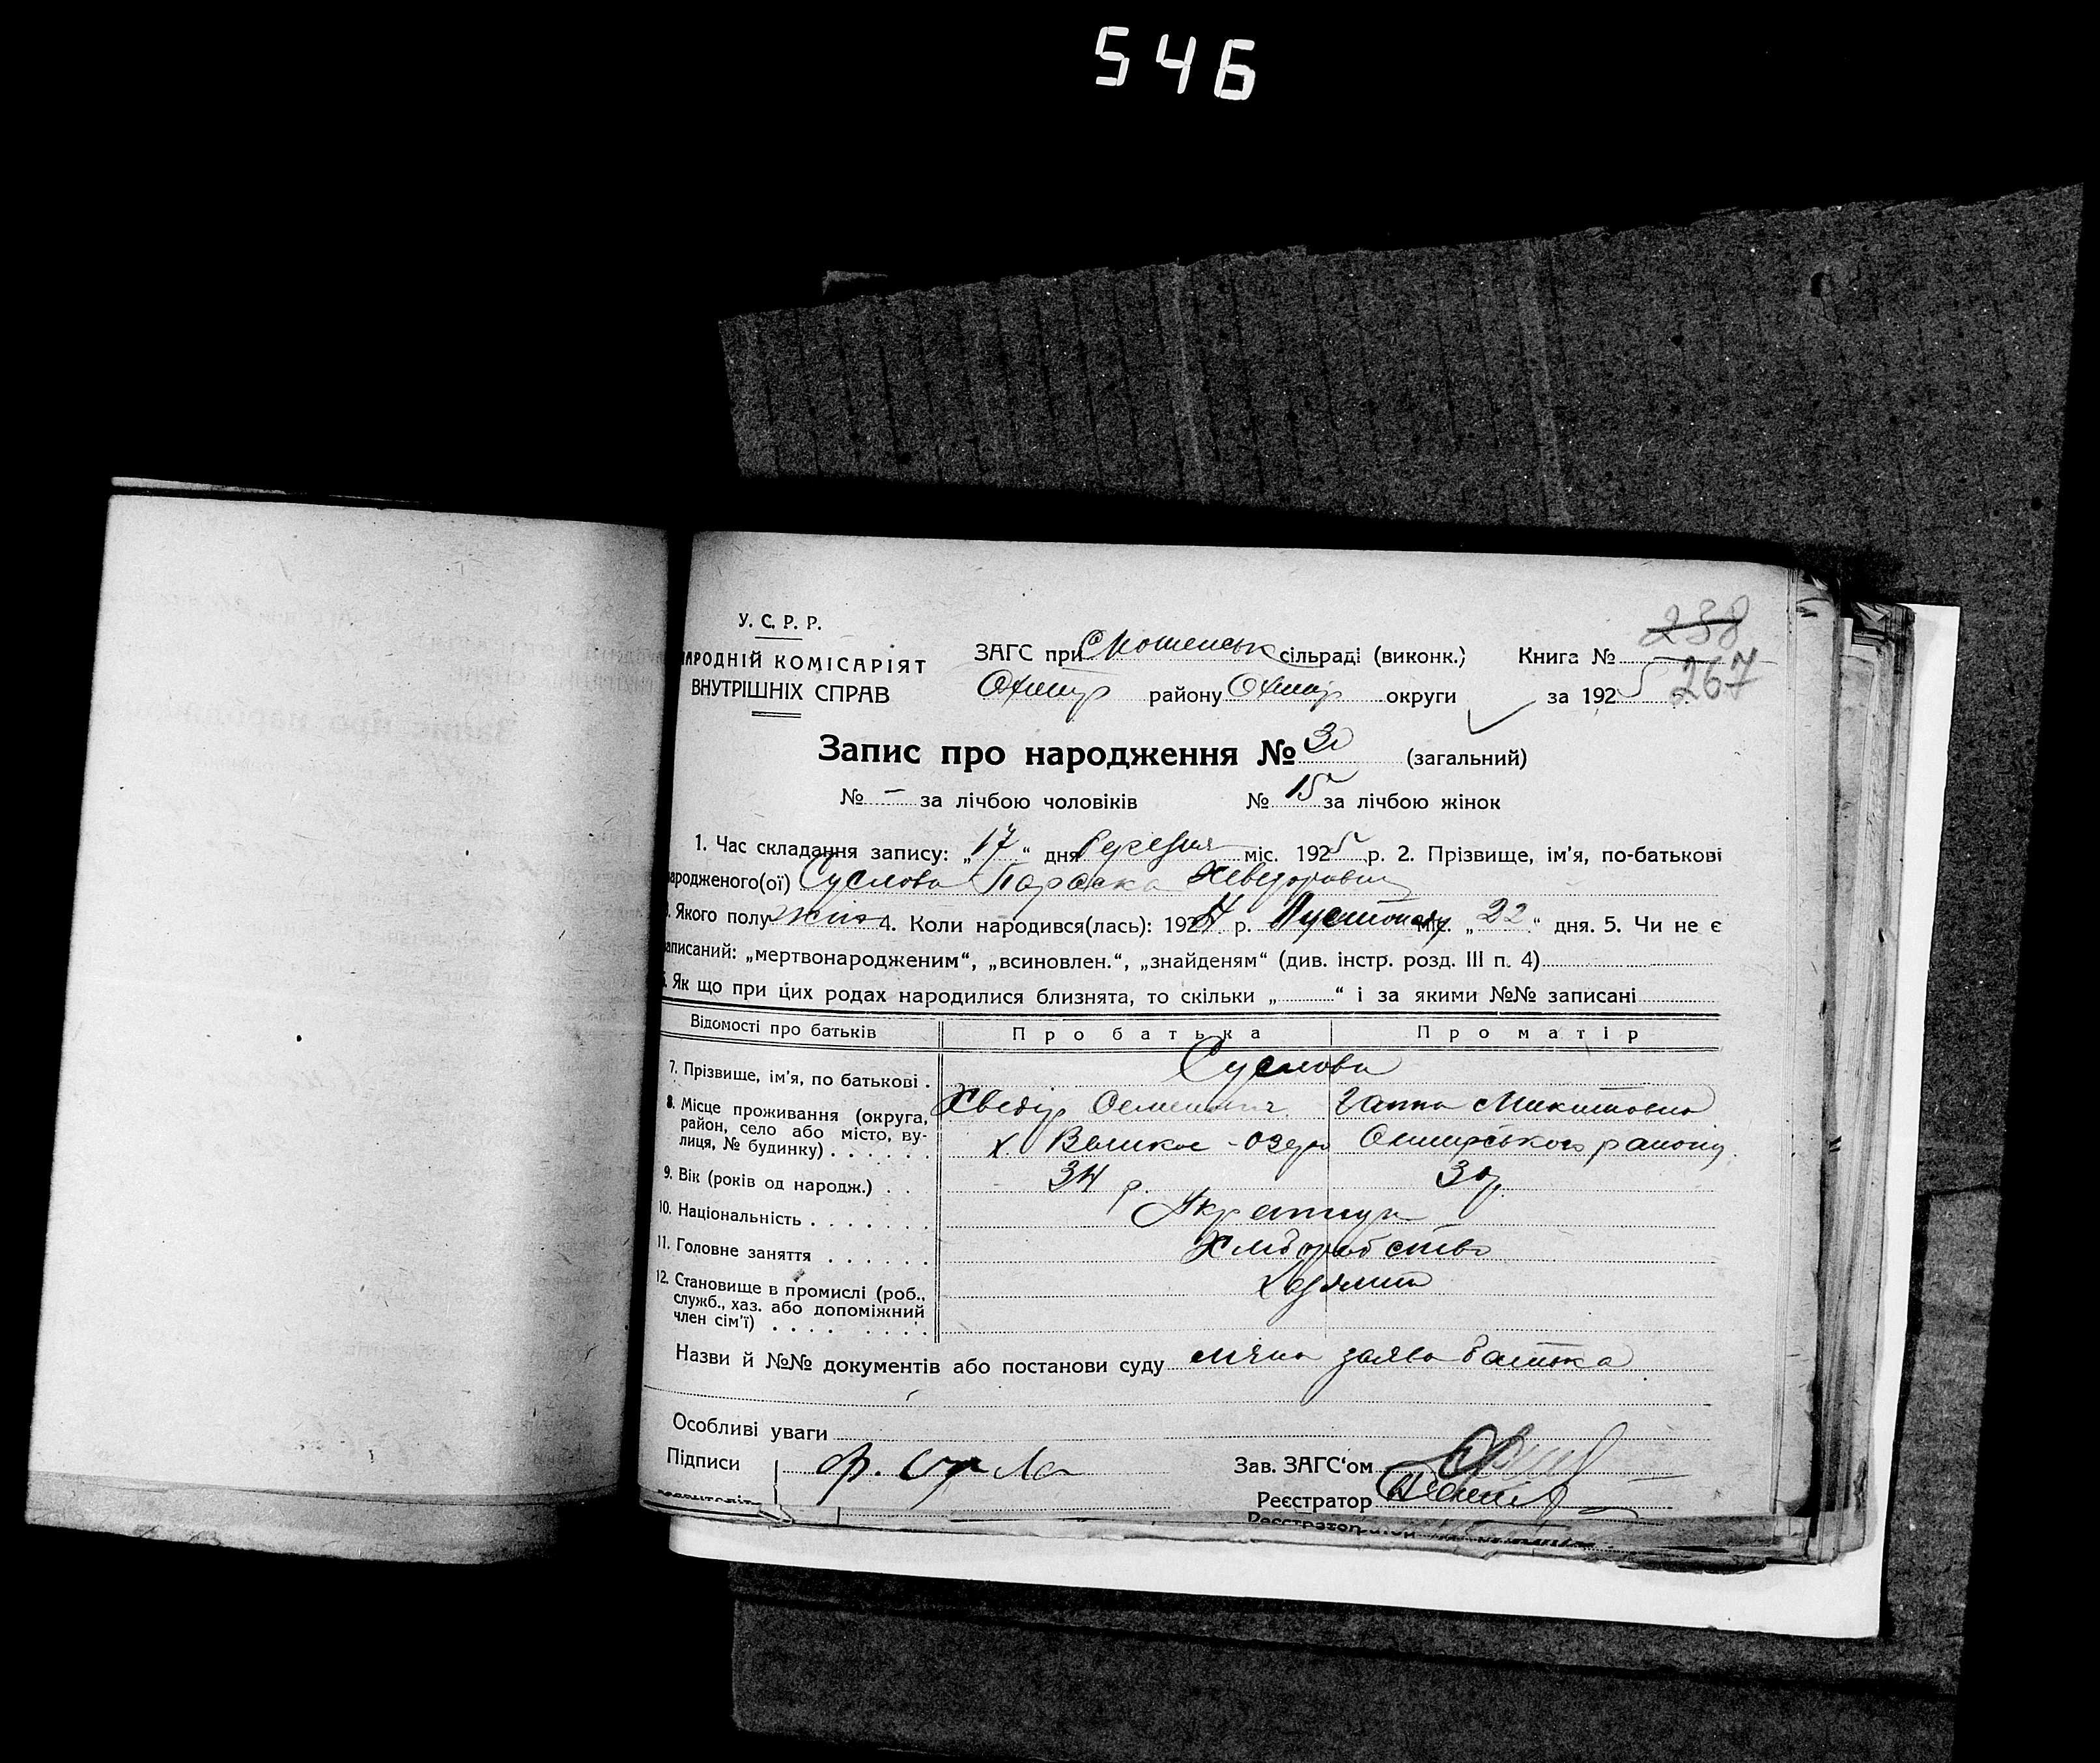 546
У. С. Р. Р.
АРОДНІЙ КОМІСАРІЯТ
ВНУТРІШНІХ СПРАВ
ЗАГС при сільраді (виконк.) Книга № 238
267
Охтир району Охтир округи за 1925
Запис про народження № 30 (загальний)
№ – за лічбою чоловіків № 15 за лічбою жінок
1. Час складання запису: „17“ дня березня міс. 1925 р. 2. Прізвище, ім’я, по-батькові
ародженого(ої) Суслова Параска Хведоровна
. Якого полу жін 4. Коли народився(лась): 1924 р. міс. „22“ дня. 5. Чи не є
аписаний: „мертвонародженим“, „всиновлен.“, „знайденям“ (див. інстр. розд. III п. 4)
. Як що при цих родах народилися близнята, то скільки „ “ і за якими №№ записані
Відомості про батьків Про батька Про матір
7. Прізвище, ім’я, по батькові . Суслови
Хведір Семенович Ганна Микитовна
8. Місце проживання (округа, район, село або місто, вулиця, № будинку) х. Велике-озеро району
9. Вік (років од народж.) 34 р. 30 р.
10. Національність Українці
11. Головне заняття Хліборобство
12. Становище в промислі (роб., служб., хаз. або допоміжний член сім’ї)
Назви й №№ документів або постанови суду заява батька
Особливі уваги
Підписи Зав. ЗАГС‘ом
Реєстратор
Реєстратор